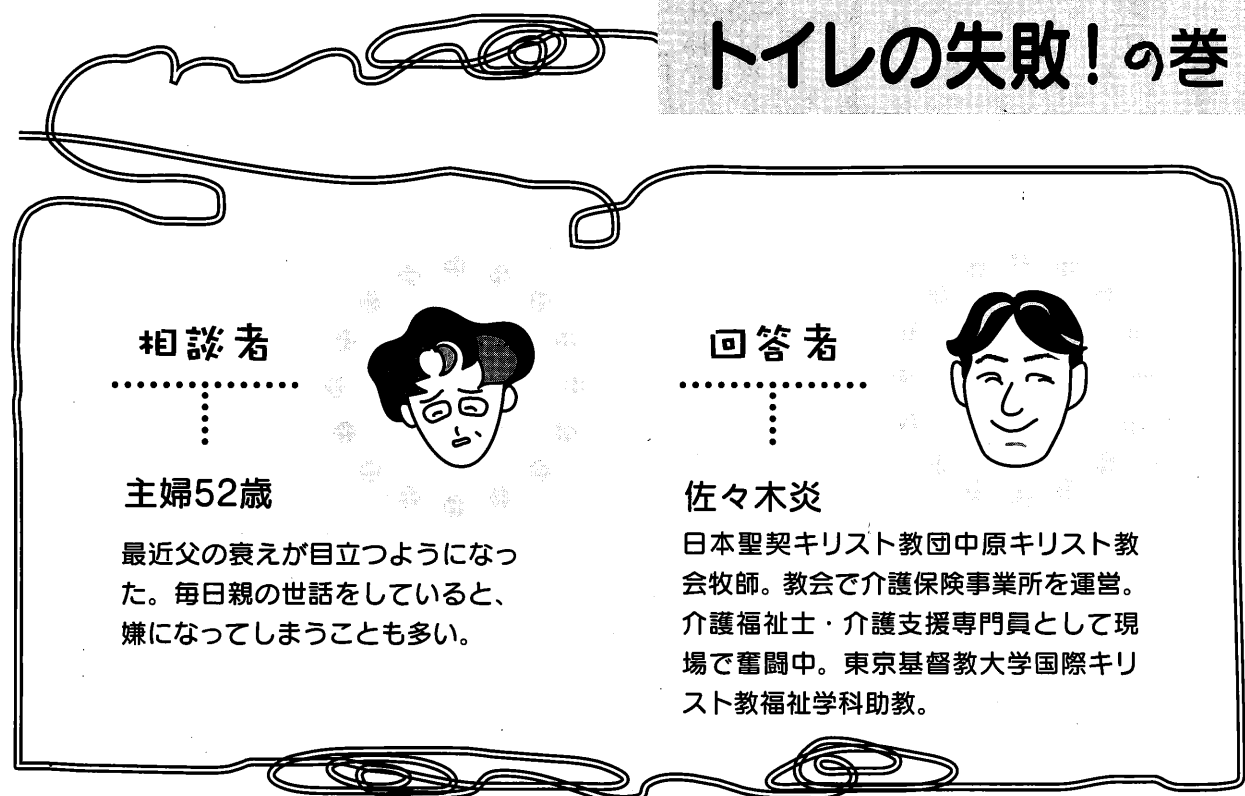 トイレの失敗!の巻
相談者
主婦52歳
最近父の衰えが目立つようになっ
た。毎日親の世話をしていると、
嫌になってしまうことも多い。
回答者
佐々木炎
日本聖契キリスト教団中原キリスト教
会牧師。教会で介護保険事業所を運営。
介護福祉士・介護支援専門員として現
場で奮闘中。東京基督教大学国際キリ
スト教福祉学科助教。